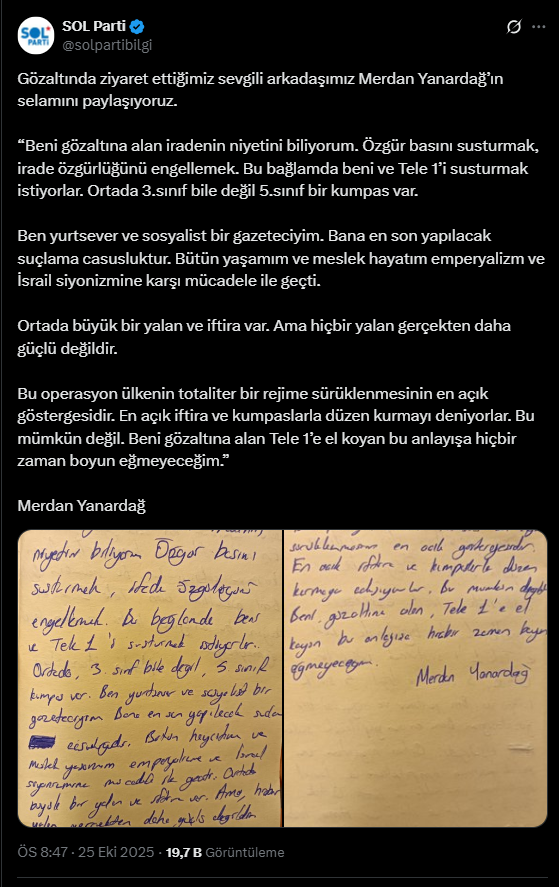 SOL Parti
@solpartibilgi
Gözaltında ziyaret ettiğimiz sevgili arkadaşımız Merdan Yanardağ’ın
selamını paylaşıyoruz.
“Beni gözaltına alan iradenin niyetini biliyorum. Özgür basını susturmak,
irade özgürlüğünü engellemek. Bu bağlamda beni ve Tele 1’i susturmak
istiyorlar. Ortada 3.sınıf bile değil 5.sınıf bir kumpas var.
Ben yurtsever ve sosyalist bir gazeteciyim. Bana en son yapılacak
suçlama casusluktur. Bütün yaşamım ve meslek hayatım emperyalizm ve
İsrail siyonizmine karşı mücadele ile geçti.
Ortada büyük bir yalan ve iftira var. Ama hiçbir yalan gerçekten daha
güçlü değildir.
Bu operasyon ülkenin totaliter bir rejime sürüklenmesinin en açık
göstergesidir. En açık iftira ve kumpaslarla düzen kurmayı deniyorlar. Bu
mümkün değil. Beni gözaltına alan Tele 1’e el koyan bu anlayışa hiçbir
zaman boyun eğmeyeceğim.”
Merdan Yanardağ
niyetini biliyorum Özgür basını
susturmak, ifade özgürlüğünü
engellemek. Bu bağlamda beni
ve Tele 1'i susturmak istiyorlar.
Ortada, 3. sınıf bile değil, 5 sınıf
kumpas var. Ben yurtsever ve sosyalist bir
gazeteciyim Bana en son yapılacak
Bütün hayatım ve
meslek yaşamım emperyalizme ve İsrail
siyonizmine mücadele ile geçti. Ortada
büyük bir yalan ve iftira var. Ama, hiçbir
yalan gerçekten daha güçlü değildir.
sürüklenmesinin en açık göstergesidir.
En açık iftira ve kumpaslarla düzen
kurmaya çalışıyorlar. Bu mümkün değil
Beni, gözaltına alan, Tele 1'e el
koyan bu anlayışa hiçbir zaman boyun
eğmeyeceğim.
Merdan Yanardağ
ÖS 8:47 · 25 Eki 2025 · 19,7 B Görüntüleme